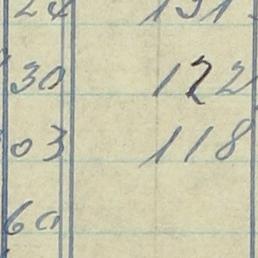 24 131
30 122
03 118
60